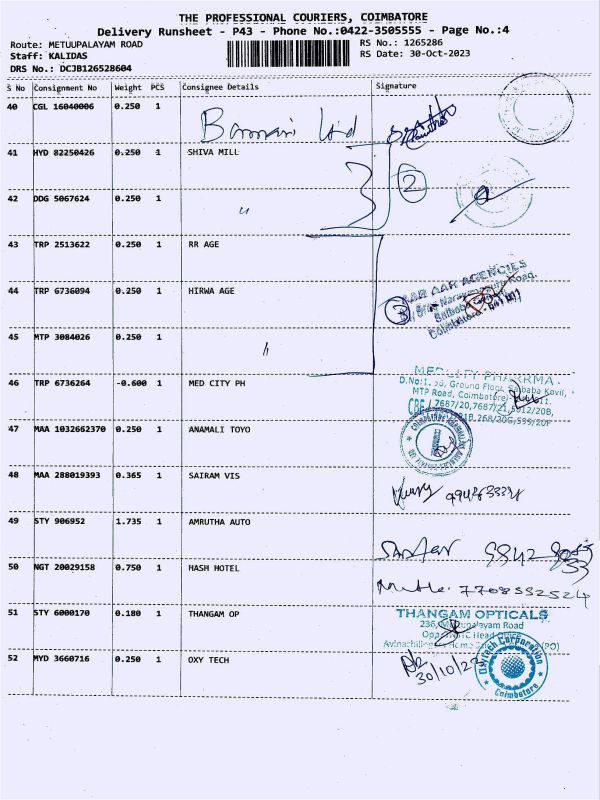 THE PROFESSIONAL COURIERS, COIMBATORE
Delivery Runsheet - P43 - Phone No.:0422-3505555 - Page No.:4
Route: METUUPALAYAM ROAD
RS No.: 1265286
Staff: KALIDAS
RS Date: 30-Oct-2023
DRS No.: DCJB126528604
S No Consignment No Weight PCS Consignee Details Signature
40 CGL 16040006 0.250 1
41 HYD 82250426 0.250 1 SHIVA MILL
2
42 DDG 5067624 0.250 1 "
43 TRP 2513622 0.250 1 RR AGE
44 TRP 6736094 0.250 1 HIRWA AGE
3
AAR AAR AGENCIES
Coimbatore
45 MTP 3084026 0.250 1 "
46 TRP 6736264 -0.600 1 MED CITY PH
MED CITY PHARMA
D.No:1, Ground Floor, Saibaba Kovil,
MTP Road, Coimbatore
47 MAA 1032662370 0.250 1 ANAMALI TOYO
48 MAA 288019393 0.365 1 SAIRAM VIS
49 STY 906952 1.735 1 AMRUTHA AUTO
50 NGT 20029158 0.750 1 HASH HOTEL
7708532524
51 STY 6000170 0.180 1 THANGAM OP
THANGAM OPTICALS
52 MYD 3660716 0.250 1 OXY TECH
30/10/23
Oxytech Corporation
Coimbatore